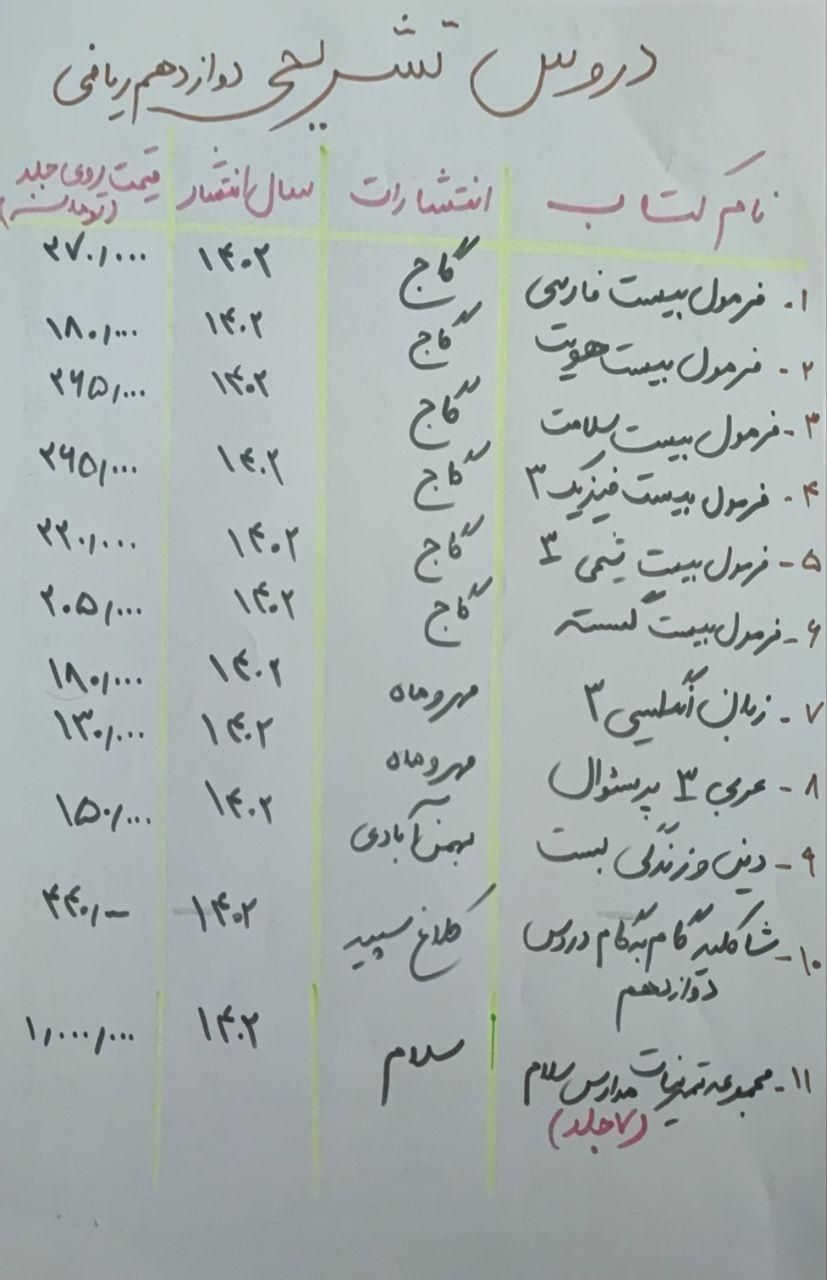 دروس تشریحی دوازدهم ریاضی
نام کتاب انتشارات سال انتشار قیمت روی جلد (تومان)
۱. فرمول بیست فارسی گاج ۱۴۰۲ ۲۷۰,۰۰۰
۲. فرمول بیست هویت گاج ۱۴۰۲ ۱۸۰,۰۰۰
۳- فرمول بیست سلامت گاج ۱۴۰۲ ۲۶۵,۰۰۰
۴. فرمول بیست فیزیک ۳ گاج ۱۴۰۲ ۲۶۵,۰۰۰
۵- فرمول بیست شیمی ۳ گاج ۱۴۰۲ ۲۲۰,۰۰۰
۶- فرمول بیست گسسته گاج ۱۴۰۲ ۲۰۵,۰۰۰
۷- زبان انگلیسی ۳ مهروماه ۱۴۰۲ ۱۸۰,۰۰۰
۸- عربی ۳ پرسئوال مهروماه ۱۴۰۲ ۱۳۰,۰۰۰
۹- دین و زندگی بیست بهمن آبادی ۱۴۰۲ ۱۵۰,۰۰۰
۱۰- شاکلید گام به گام دروس کلاغ سپید ۱۴۰۲
دوازدهم
۱۱- مجموعه تمرینات مدارس سلام سلام ۱۴۰۲ ۱,۰۰۰,۰۰۰
(۷ جلد)